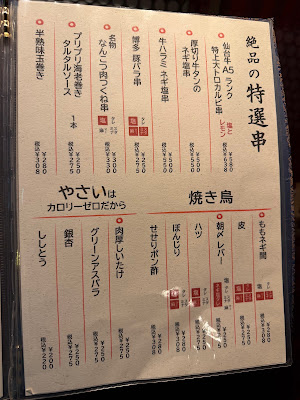 絶品の特選串
仙台牛A5ランク
特上大トロカルビ串
塩と
レモン
¥580
税込¥638
厚切り牛タンの
ネギ塩串
¥500
税込¥550
牛ハラミネギ塩串
¥500
税込¥550
博多 豚バラ串
塩
タレ
¥250
税込¥275
名物
なんこつ肉つくね串
塩
タレ
¥300
税込¥330
プリプリ海老巻き
タルタルソース
1本
¥250
税込¥275
半熟味玉巻き
¥280
税込¥308
焼き鳥
ももネギ間
塩
タレ
¥280
税込¥308
皮
塩
タレ
¥250
税込¥275
朝〆レバー
¥250
税込¥275
ハツ
塩
タレ
¥250
税込¥275
ぼんじり
塩
タレ
¥280
税込¥308
せせりポン酢
¥280
税込¥308
やさいは
カロリーゼロだから
肉厚しいたけ
¥250
税込¥275
グリーンアスパラ
¥250
税込¥275
銀杏
¥250
税込¥275
ししとう
¥200
税込¥220